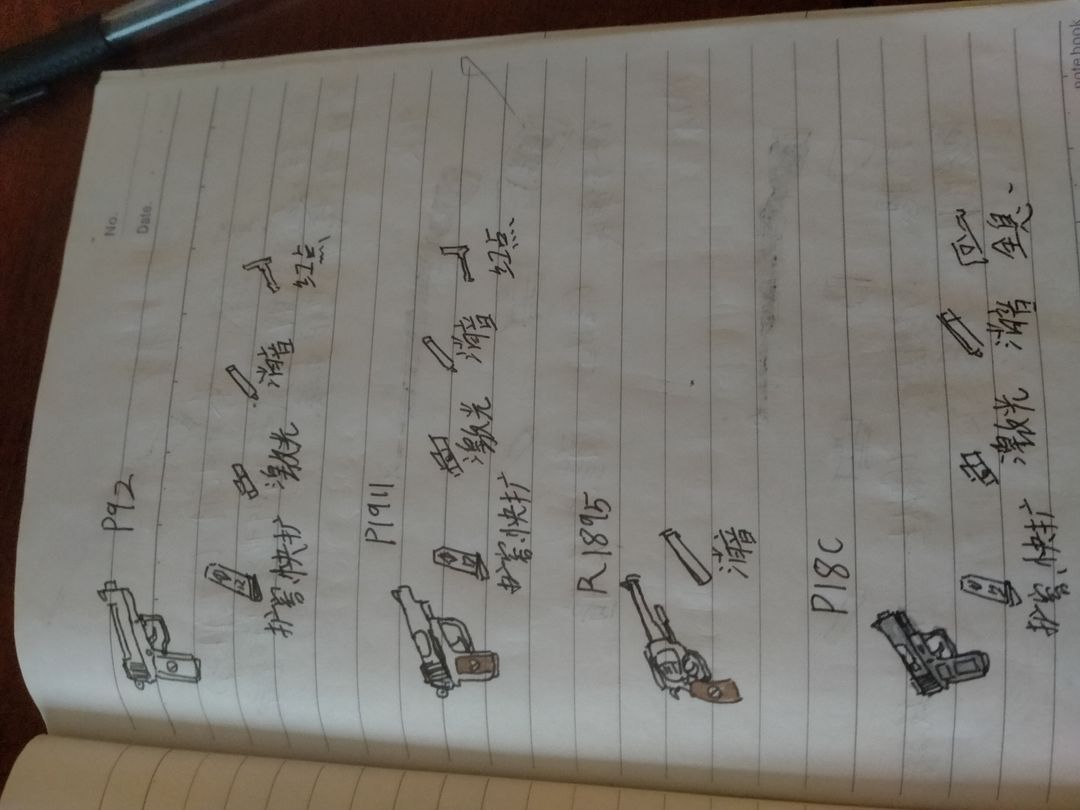 No.
Date.
P92
扩容 快扩 激光 消音 红点
P1911
扩容 快扩 激光 消音 红点
R1895
消音
P18C
扩容 快扩 激光 消音 全息
notebook